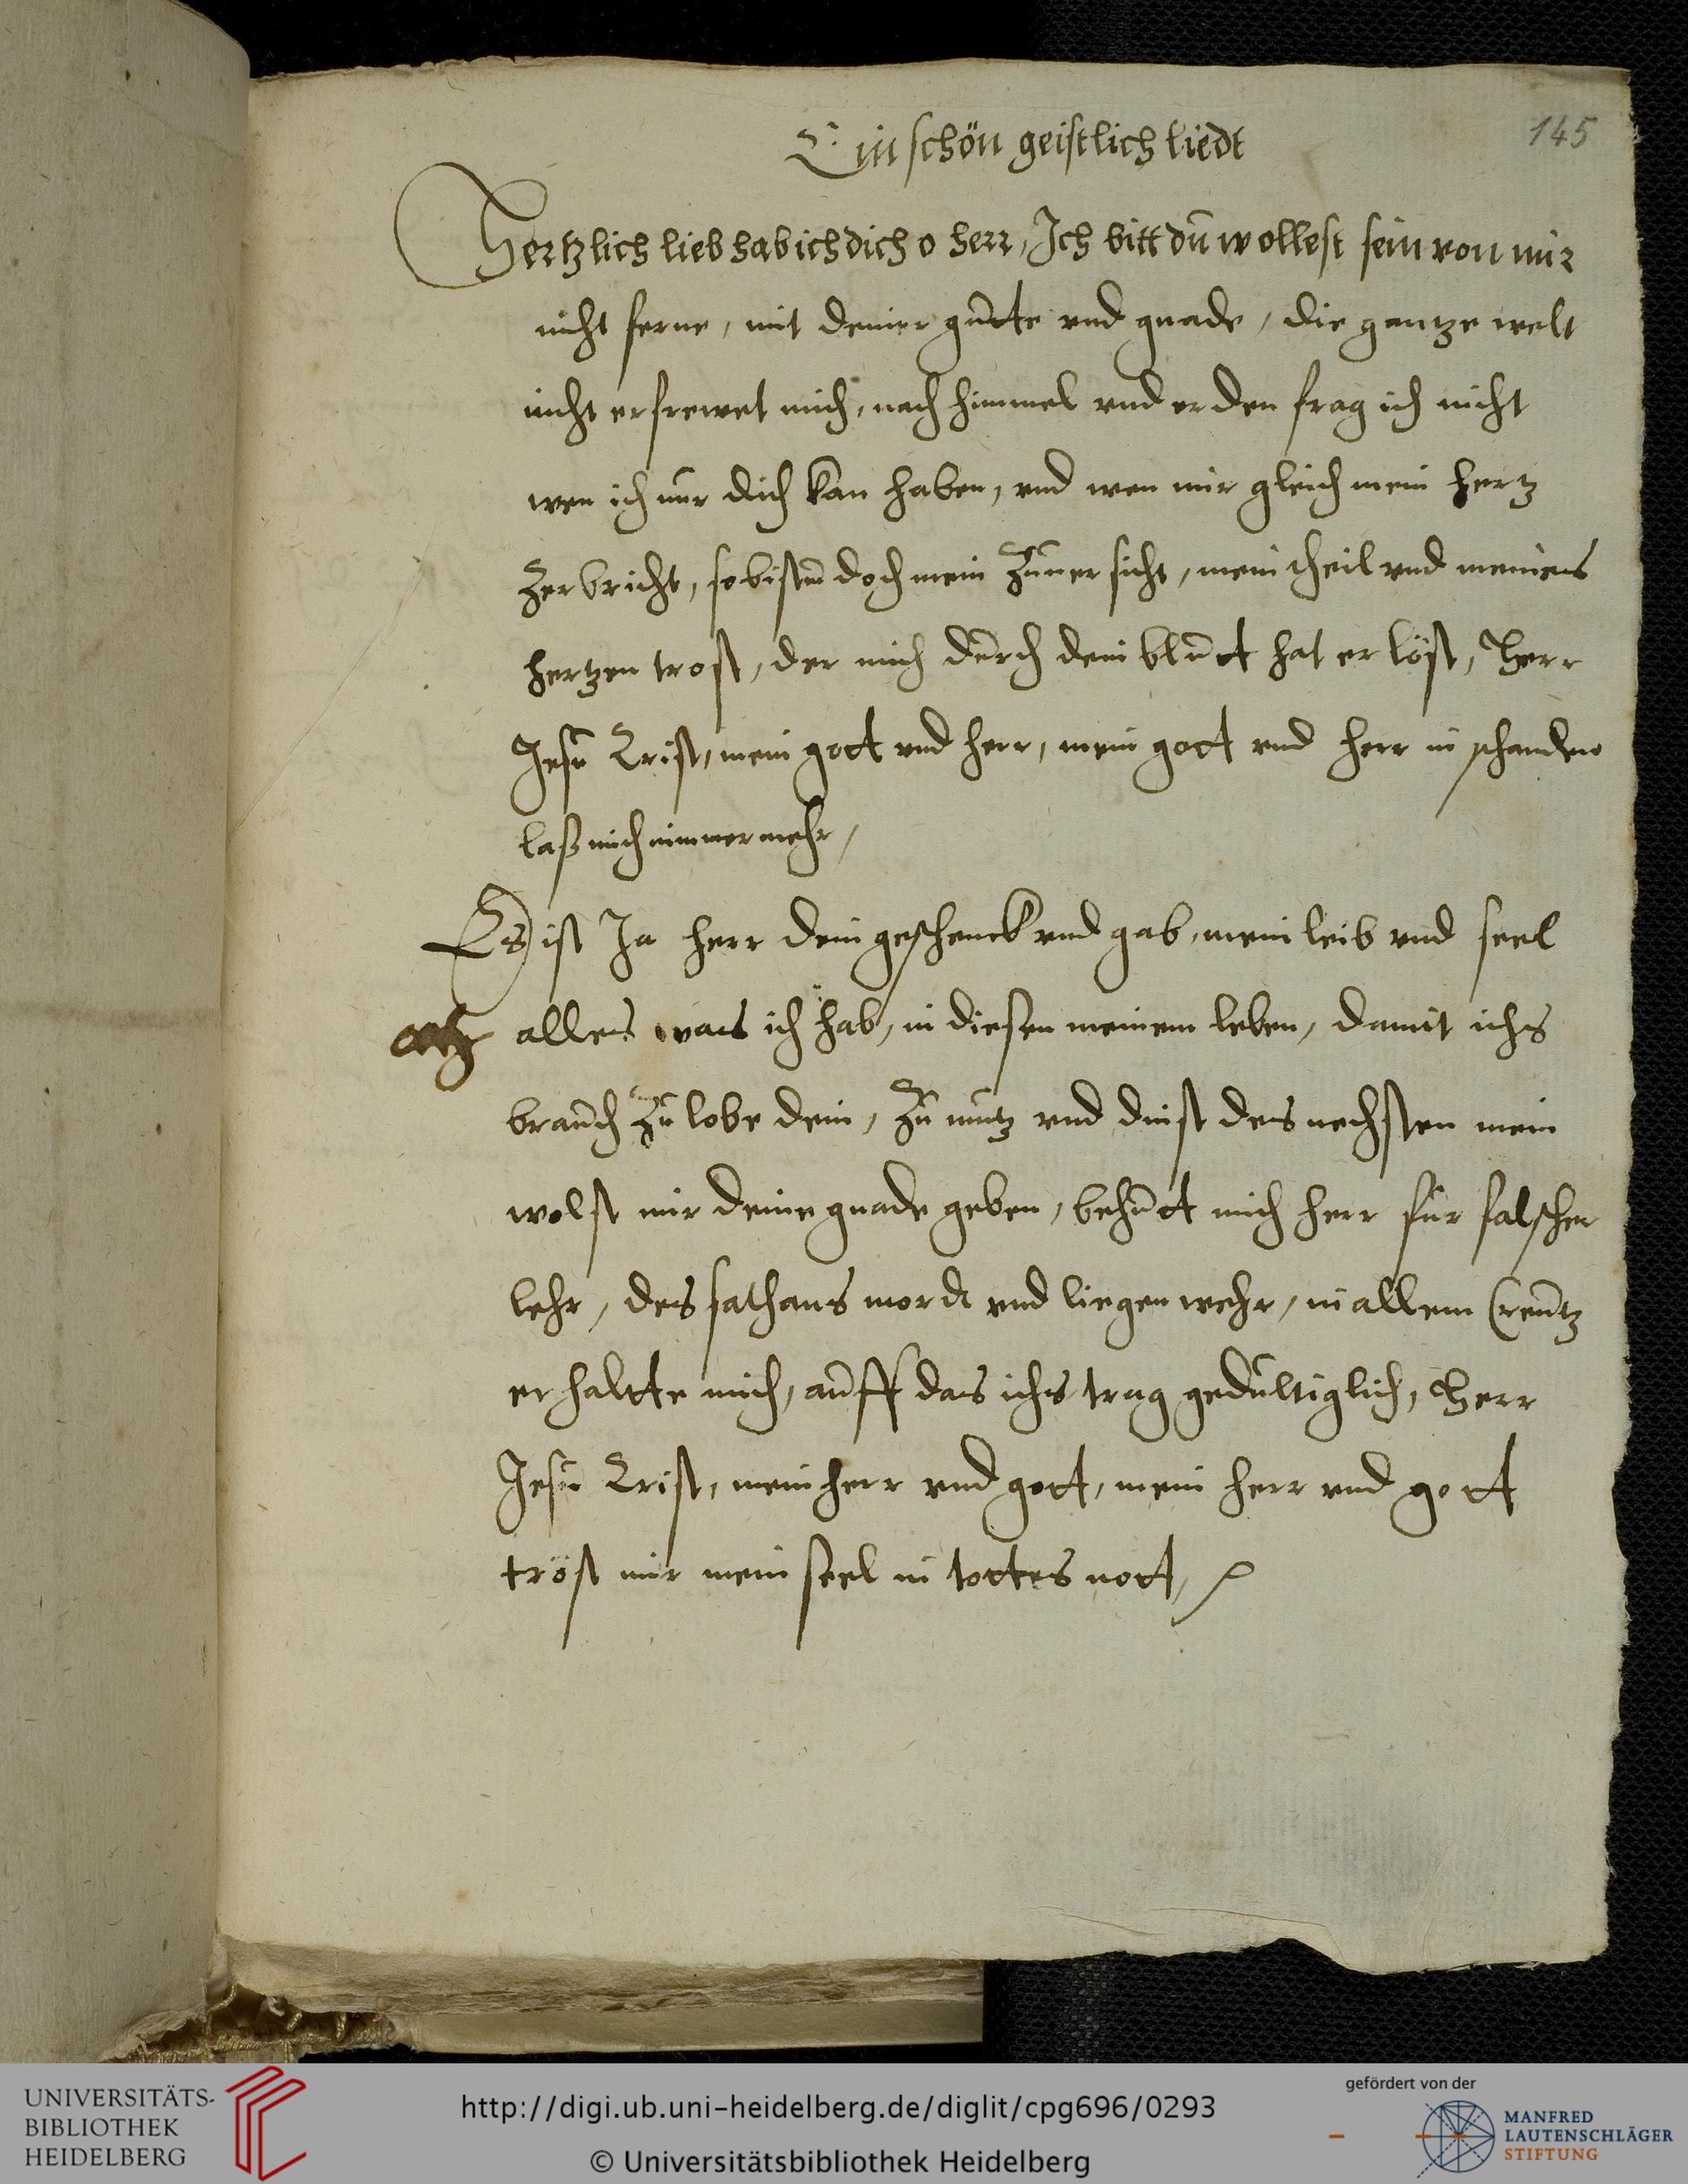 145
Ein schön geistlich liedt
Hertzlich lieb hab ich dich o herr, Ich bitt dŭ wollest sein von mir
nicht ferne, mit deiner gŭtte vnd gnade, die gantze welt
nicht erfrewet mich, nach himmel vnd erden frag ich nicht
wen ich nur dich kan haben, vnd wen mir gleich mein hertz
Zerbricht, so bistŭ doch mein Zŭuersicht, mein theil vnd meines
hertzen trost, der mich dŭrch dein blŭtt hat erlöst, Herr
Jesŭ Crist, mein gott vnd herr, mein gott vnd herr in schanden
laß mich nimmermehr,
Es ist Ja herr dein geschenck vnd gab, mein leib vnd seel
alles was ich hab, in diesen meinem leben, damit ichs
braŭch Zŭ lobe dein, Zŭ nutz vnd dinst des nechsten mein
wolst mir deine gnade geben, behŭtt mich herr fŭr falscher
lehr, des sathans mordt vnd liegen wehr, in allem Creŭtz
erhaltte mich, aŭff das ichs trag gedŭltiglich, Herr
Jesŭ Crist, mein herr vnd gott, mein herr vnd gott
tröst mir mein seel in tottes nott,
UNIVERSITÄTS-
BIBLIOTHEK
HEIDELBERG
http://digi.ub.uni-heidelberg.de/diglit/cpg696/0293
© Universitätsbibliothek Heidelberg
gefördert von der
MANFRED
LAUTENSCHLÄGER
STIFTUNG